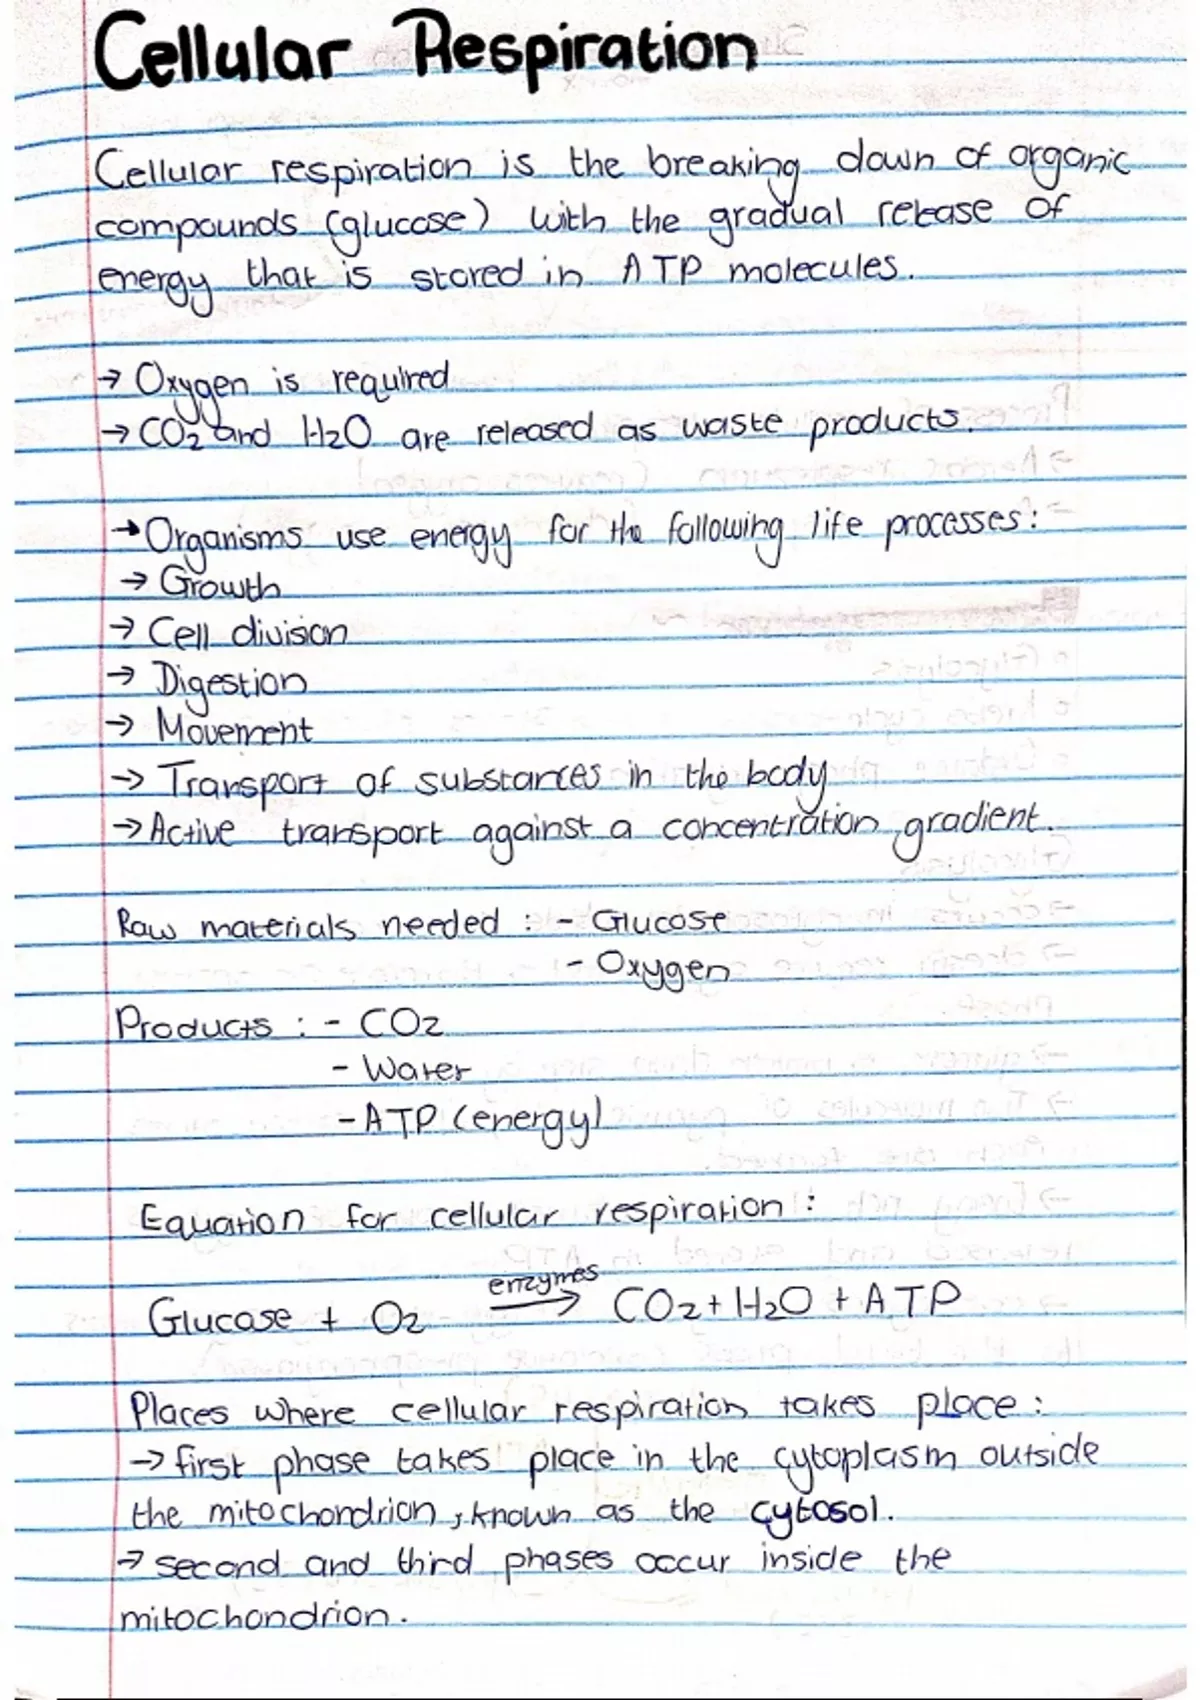 Cellular Respiration
Cellular respiration is the breaking down of organic
compounds (glucose) with the gradual release of
energy that is stored in ATP molecules.
→ Oxygen is required
→ CO2 and H2O are released as waste products.
→ Organisms use energy for the following life processes:
→ Growth
→ Cell division
→ Digestion
→ Movement
→ Transport of substances in the body
→ Active transport against a concentration gradient.
Raw materials needed : - Glucose
- Oxygen
Products : - CO2
- Water
- ATP (energy)
Equation for cellular respiration :
enzymes
Glucose + O2 → CO2 + H2O + ATP
Places where cellular respiration takes place :
→ first phase takes place in the cytoplasm outside
the mitochondrion, known as the cytosol.
→ second and third phases occur inside the
mitochondrion.